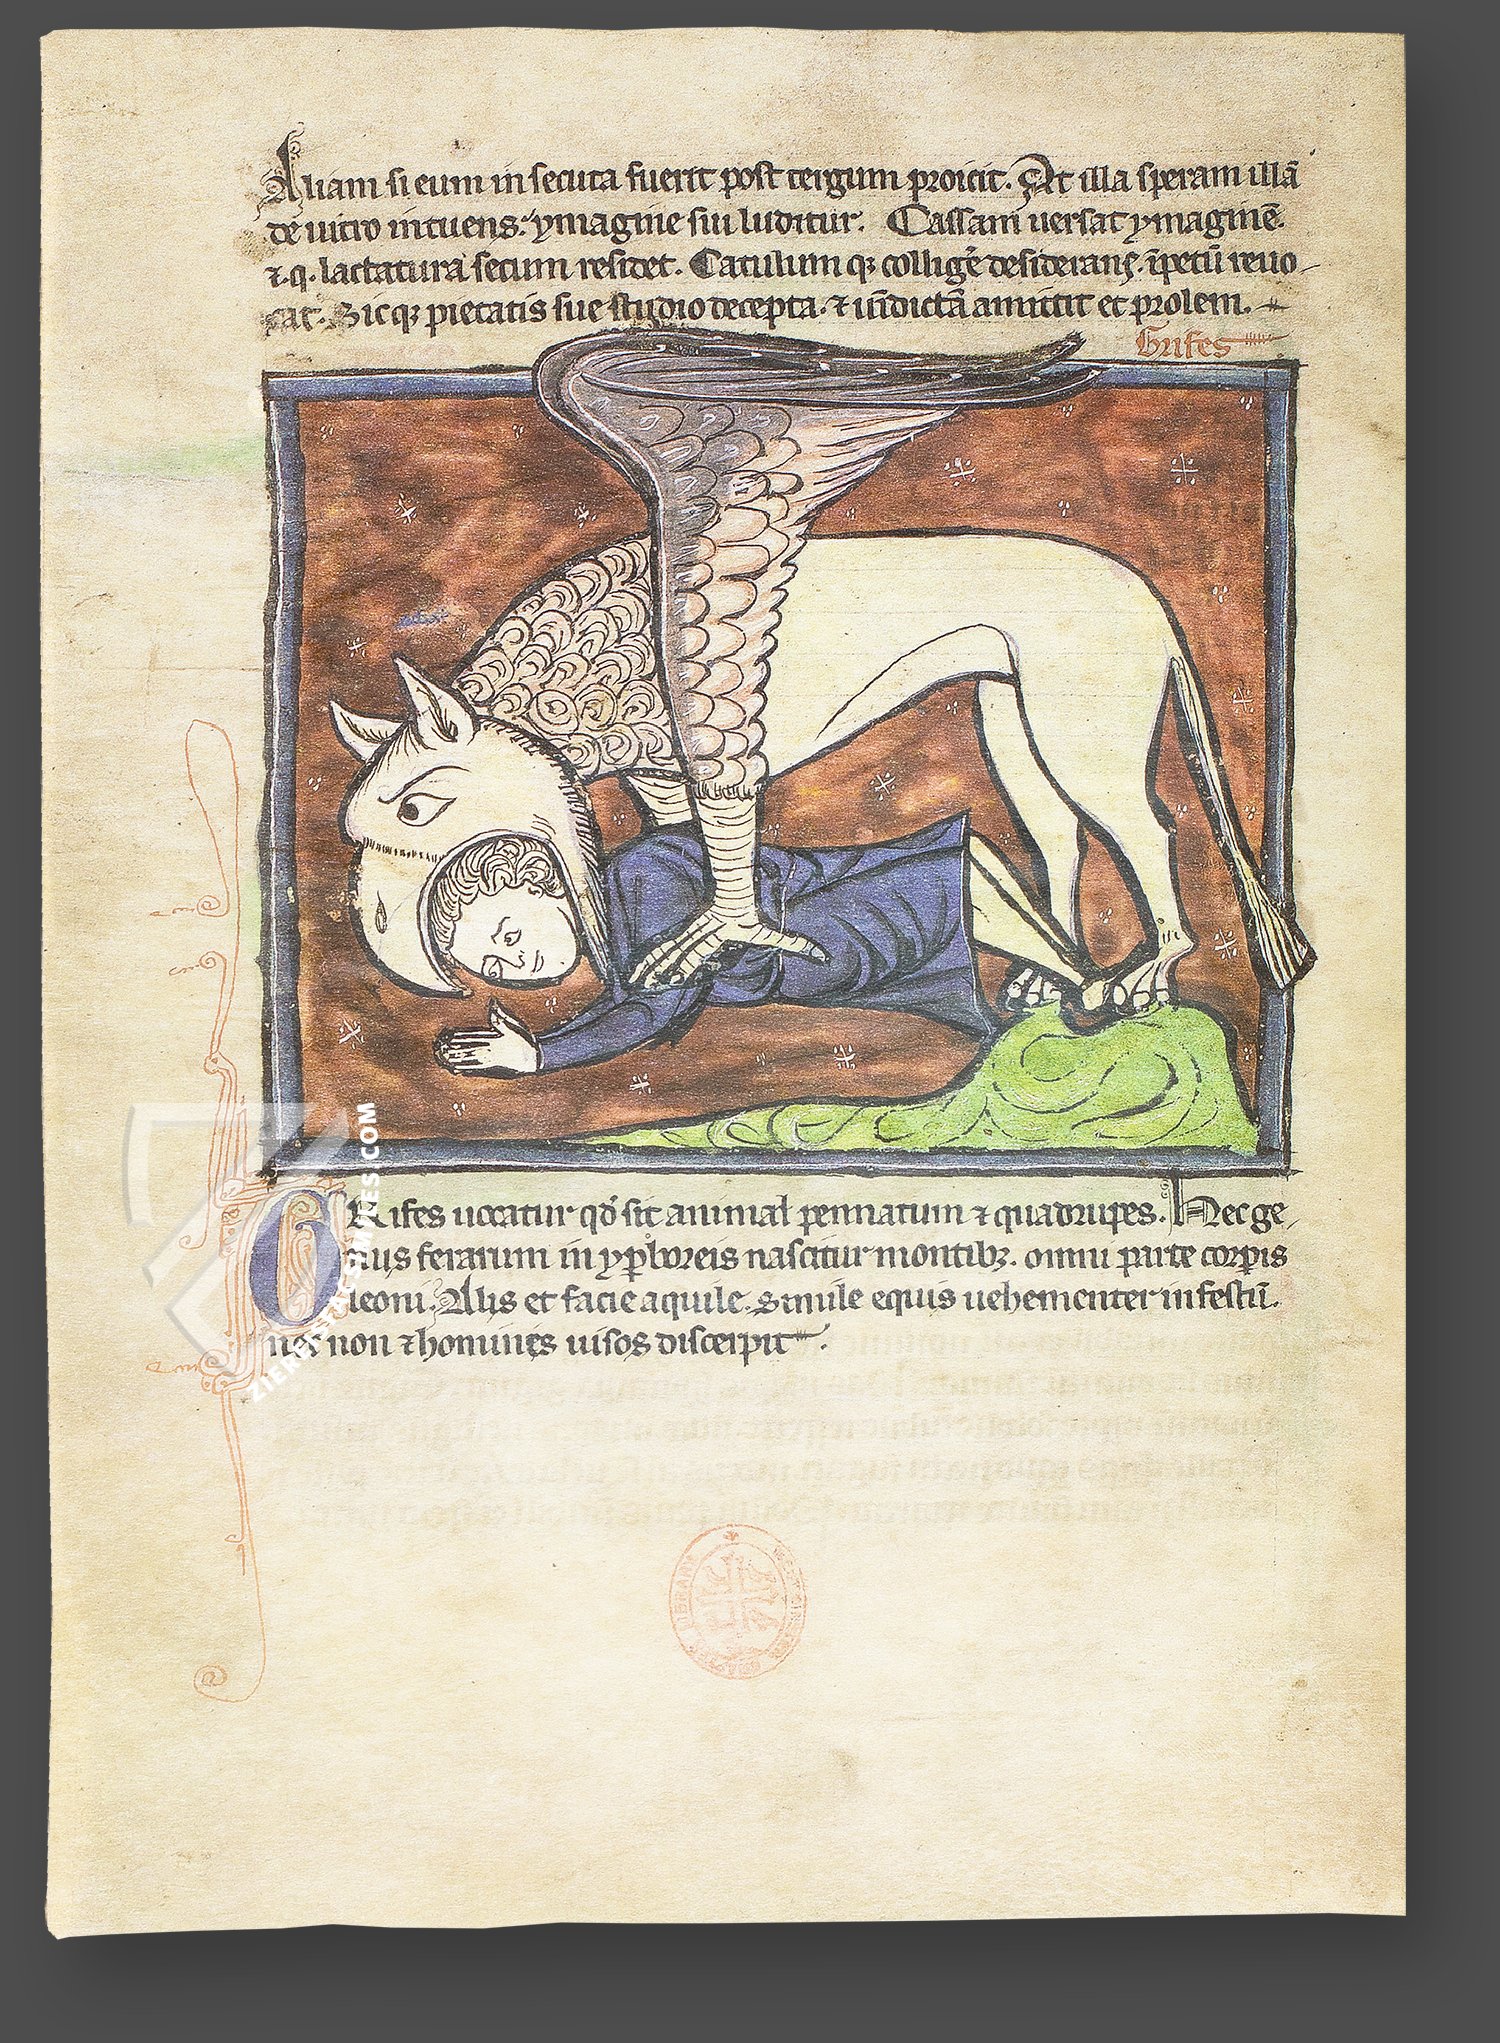 Aliam si eum insecuta fuerit post tergum proicit. At illa speram illā
de uitro intuens. ymagine sui luditur. Cassam uersat ymaginē.
⁊ .q. lactatura fetum residet. Catulum qꝫ colligˀe desiderans. īpetū reuo
cat. Sicqꝫ pietatis sue studio decepta. ⁊ uīdictā amittit et prolem.
Grifes
GRifes uocatur qđ sit animal pennatum ⁊ quadrupes. Hec ge
nus ferarum in yꝑboreis nascitur montibꝫ. omni parte corꝑis
leoni. Alis et facie aquile simile equis uehementer infestū.
nec non ⁊ homines uisos discerpit.
ZIEREIS FACSIMILES.COM
LIBRARY